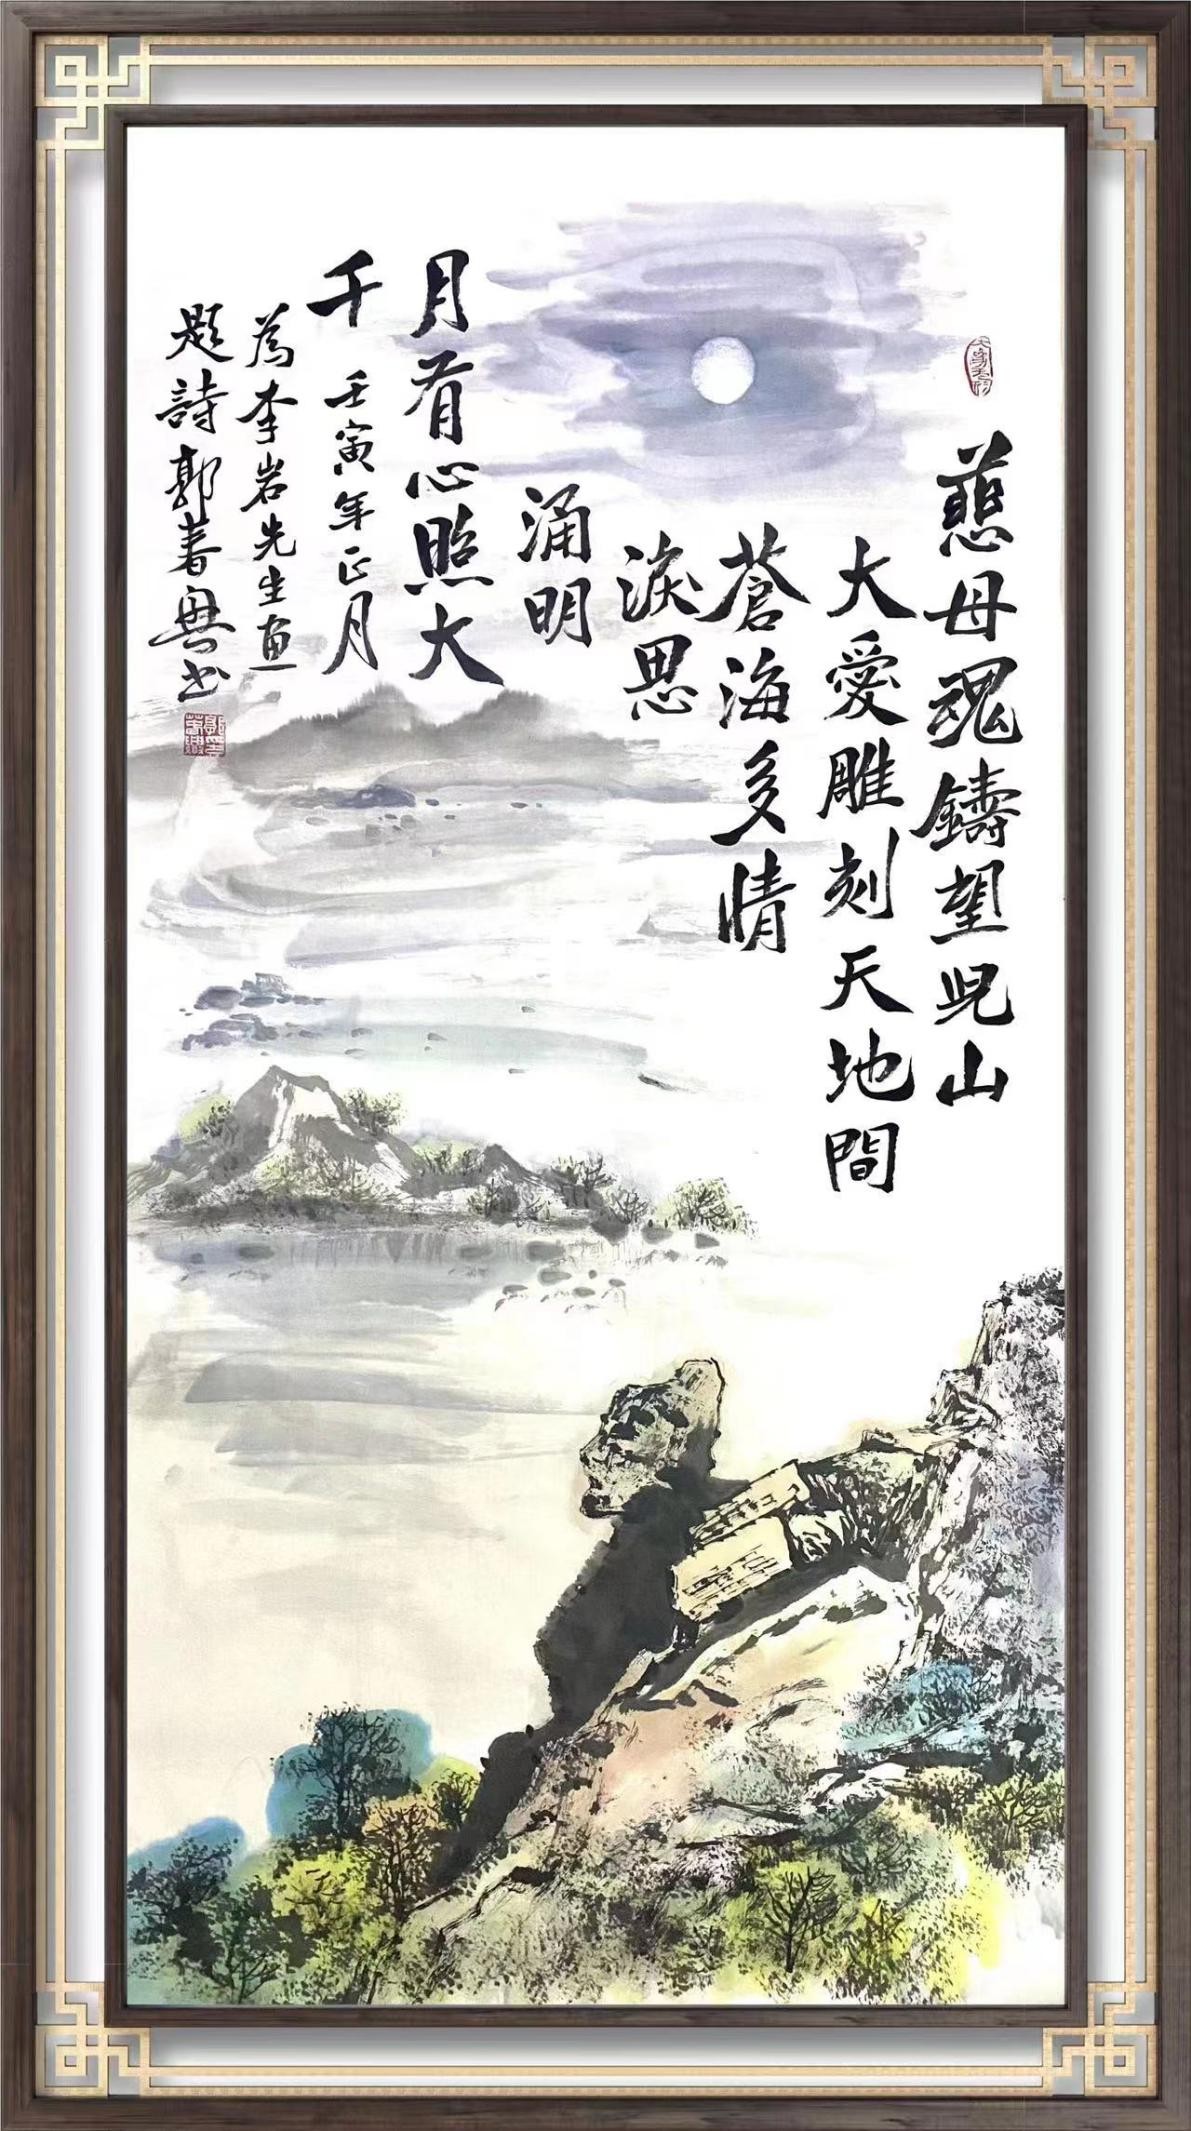 慈母魂鑄望児山
大愛雕刻天地間
蒼海多情
淚思
涌明
月有心照大
千 壬寅年正月
為李岩先生画
題詩郭春興书